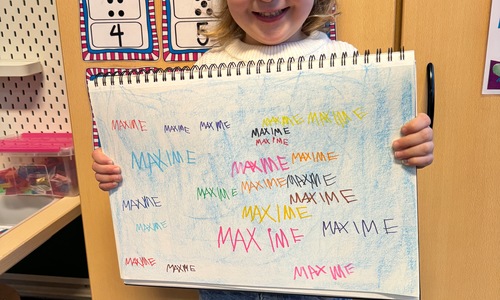 4
5
MAXIME MAXIME MAXIME MAXIME MAXIME
MAXIME
MAXIME
MAXIME MAXIME MAXIME
MAXIME MAXIME MAXIME
MAXIME MAXIME
MAXIME
MAXIME MAXIME MAXIME
MAXIME MAXIME MAXIME